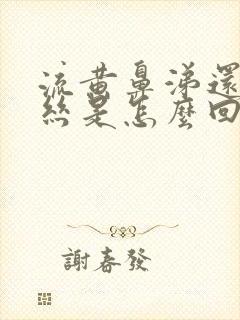 流黃鼻涕還
絲是怎麼回
謝春發